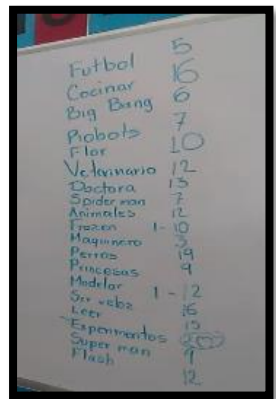 Futbol 5
Cocinar 16
Big Bang 6
Robots 7
Flor 10
Veterinario 12
Doctora 13
Spider man 7
Animales 12
Frozen 1-10
Maquinero 3
Perros 19
Princesas 9
Modelar 1-12
Ser veloz 16
Leer 15
Experimentos
Super man 9
Flash 12